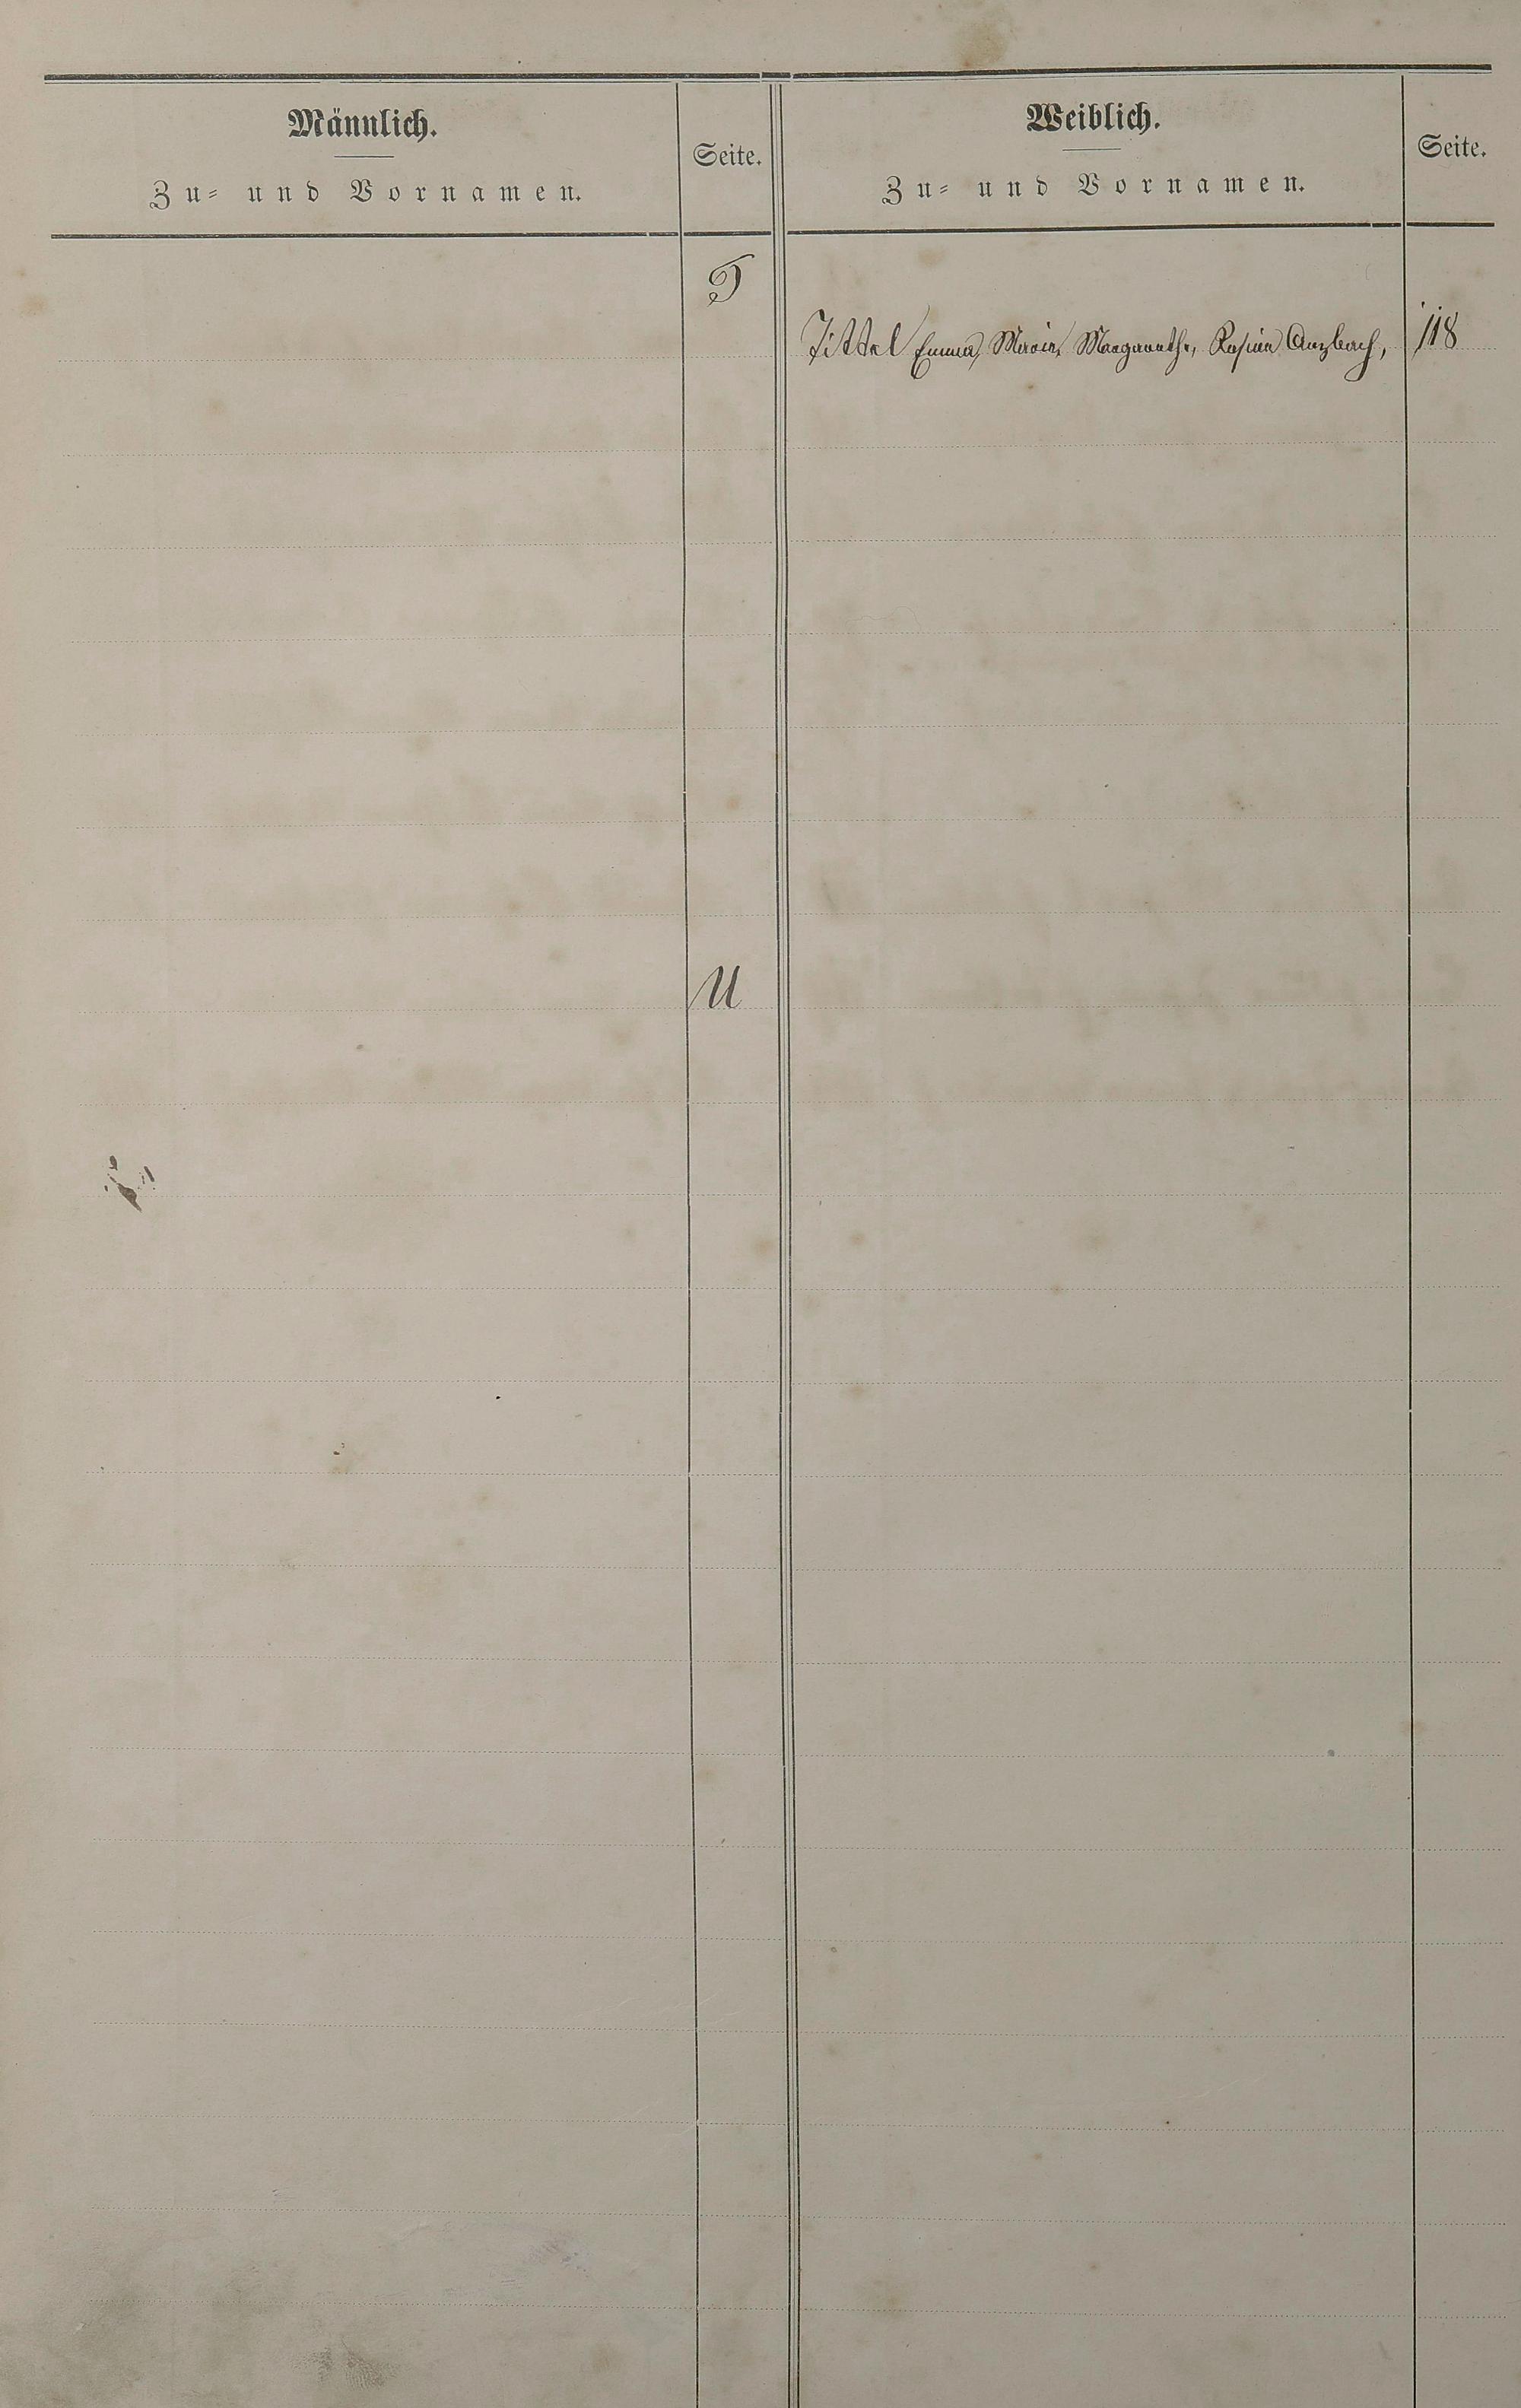 Männlich.
Zu- und Vornamen.
Seite.
Weiblich.
Zu- und Vornamen.
Seite.
T
Tittel Emma, Marie, Margarethe, Rosina Anzbach, 118
U